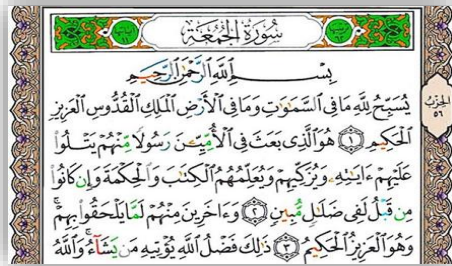 سُورَةُ الْجُمُعَةِ
بِسْمِ اللَّهِ الرَّحْمَٰنِ الرَّحِيمِ
يُسَبِّحُ لِلَّهِ مَا فِى السَّمَٰوَٰتِ وَمَا فِى الْأَرْضِ الْمَلِكِ الْقُدُّوسِ الْعَزِيزِ
الْحَكِيمِ ١ هُوَ الَّذِى بَعَثَ فِى الْأُمِّيِّـۧنَ رَسُولًا مِّنْهُمْ يَتْلُوا۟
عَلَيْهِمْ ءَايَٰتِهِۦ وَيُزَكِّيهِمْ وَيُعَلِّمُهُمُ الْكِتَٰبَ وَالْحِكْمَةَ وَإِن كَانُوا۟
مِن قَبْلُ لَفِى ضَلَٰلٍ مُّبِينٍ ٢ وَءَاخَرِينَ مِنْهُمْ لَمَّا يَلْحَقُوا۟ بِهِمْ ۚ
وَهُوَ الْعَزِيزُ الْحَكِيمُ ٣ ذَٰلِكَ فَضْلُ اللَّهِ يُؤْتِيهِ مَن يَشَآءُ ۚ وَاللَّهُ
الحزب
٥٦